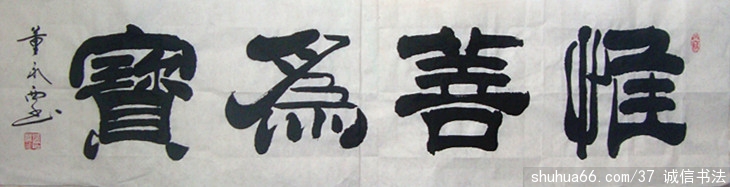 惟善為寶
董永西书
shuhua66.com/37 诚信书法